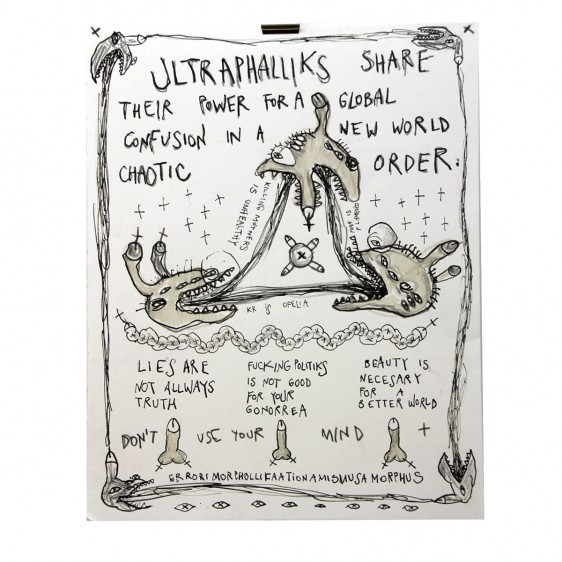 ULTRAPHALLIKS SHARE
THEIR POWER FOR A GLOBAL
CONFUSION IN A NEW WORLD
CHAOTIC ORDER:
KILLING MOTHERS
IS UNHEALTHY
KK IS OPELIA
LIES ARE
NOT ALLWAYS
TRUTH
FUCKING POLITIKS
IS NOT GOOD
FOR YOUR
GONORREA
BEAUTY IS
NECESARY
FOR A
BETTER WORLD
DON'T USE YOUR MIND
ERRORI MORPHOLLIKAATIONAMISMUSA MORPHUS